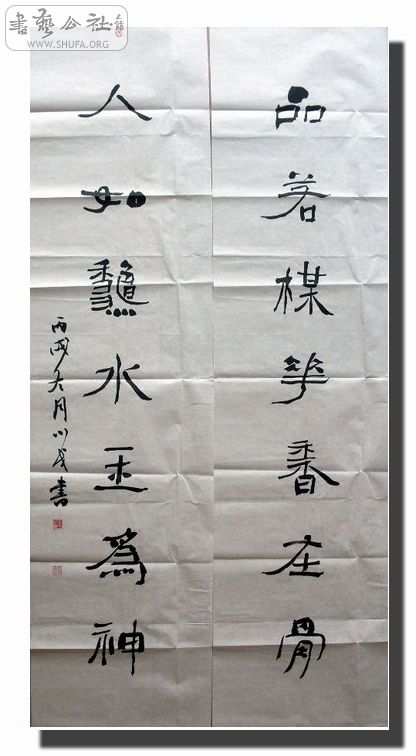 書藝公社
WWW.SHUFA.ORG
品若楳花香在骨
人如龝水玉為神
丙戌月書